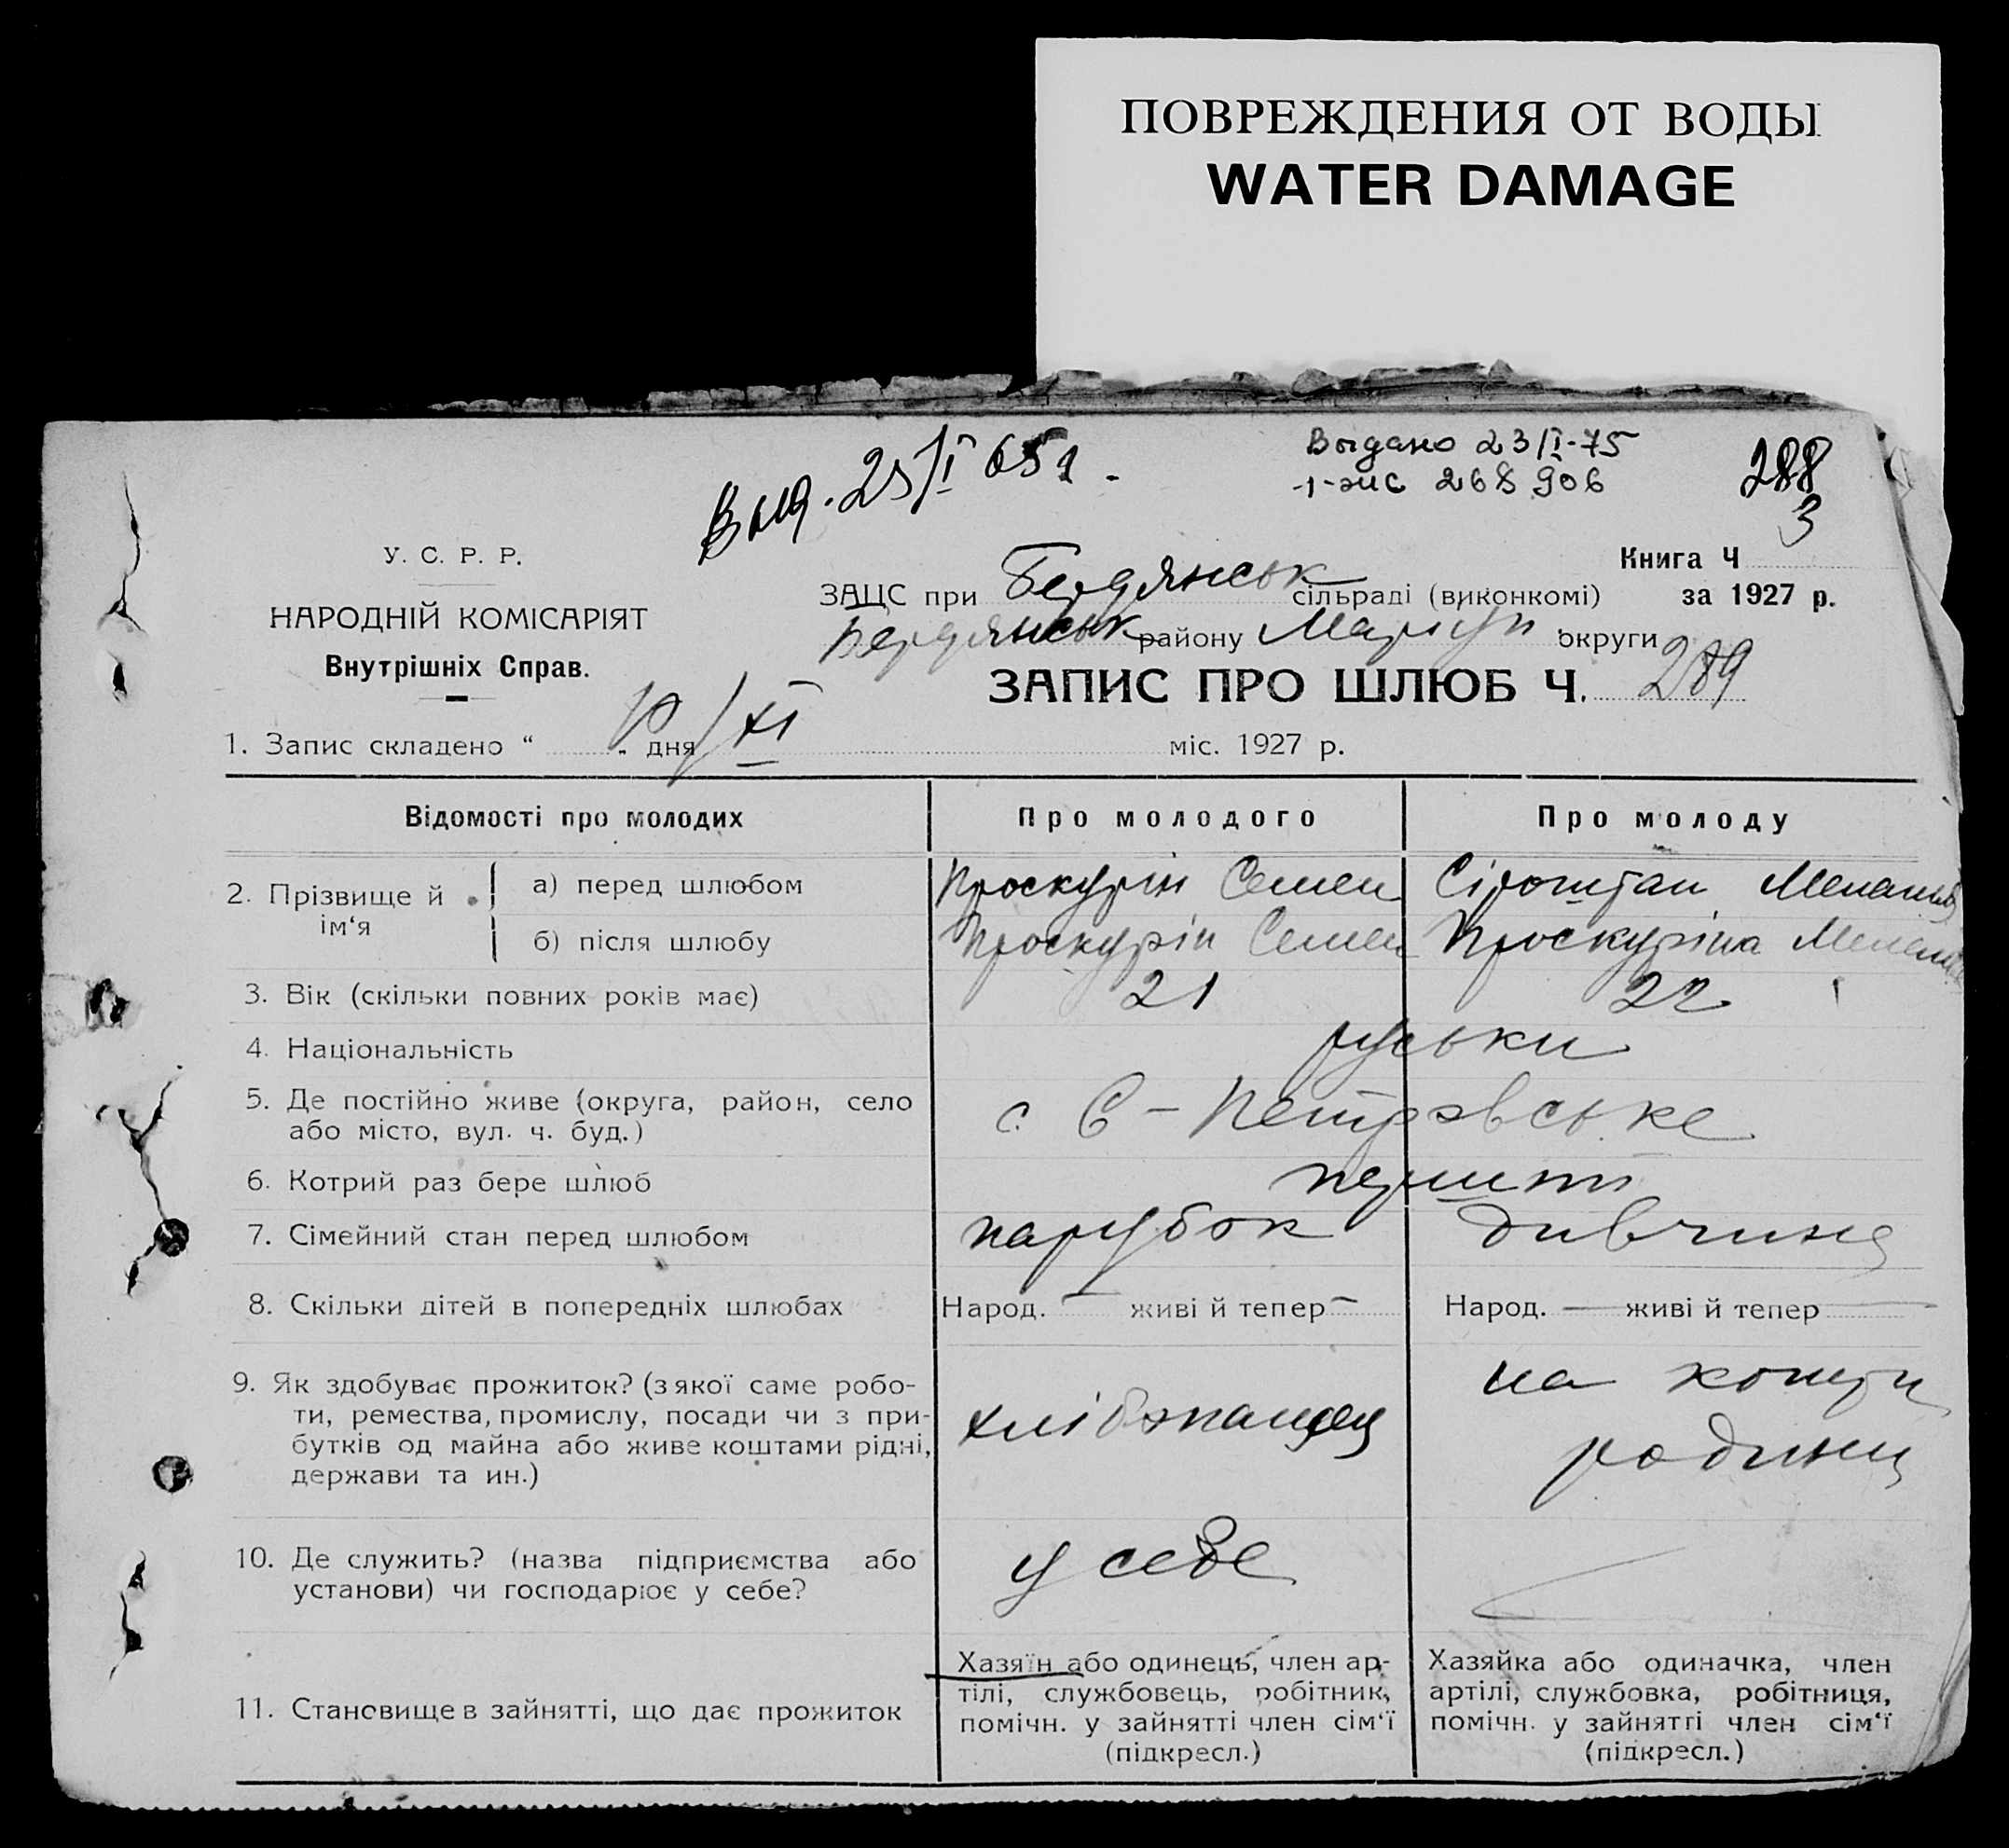 ПОВРЕЖДЕНИЯ ОТ ВОДЫ
WATER DAMAGE
Выдано 23/I-75
288
3
У. С. Р. Р.
НАРОДНІЙ КОМІСАРІЯТ
Внутрішніх Справ.
Книга Ч
ЗАЦС при Бердянськ сільраді (виконкомі) за 1927 р.
Бердянськ району Маріуп. округи
ЗАПИС ПРО ШЛЮБ Ч. 289
1. Запис складено “ 10 „ дня / XI міс. 1927 р.
Відомості про молодих Про молодого Про молоду
2. Прізвище й ім‘я а) перед шлюбом Проскурін Семен Сіроштан
б) після шлюбу Проскурін Семен Проскуріна
3. Вік (скільки повних років має) 21 22
4. Національність руськи
5. Де постійно живе (округа, район, село
або місто, вул. ч. буд.) с. Є-Петровське
6. Котрий раз бере шлюб
7. Сімейний стан перед шлюбом парубок дивчина
8. Скільки дітей в попередніх шлюбах Народ. — живі й тепер — Народ. — живі й тепер —
9. Як здобуває прожиток? (з якої саме робо-
ти, ремества, промислу, посади чи з при-
бутків од майна або живе коштами рідні,
держави та ин.)
хлібопашец
на кошти
родини
10. Де служить? (назва підприємства або
установи) чи господарює у себе?
у себе
11. Становище в зайнятті, що дає прожиток
Хазяїн або одинець, член ар-
тілі, службовець, робітник,
помічн. у зайнятті член сім‘ї
(підкресл.)
Хазяйка або одиначка, член
артілі, службовка, робітниця,
помічн. у зайнятті член сім‘ї
(підкресл.)